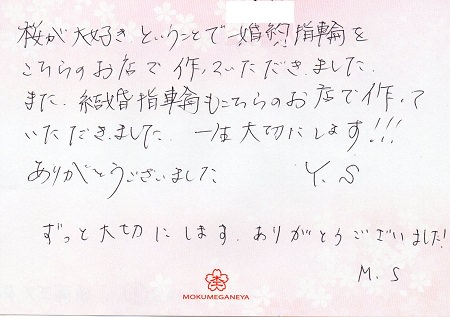 桜が大好きということで婚約指輪を
こちらのお店で作っていただきました.
また、結婚指輪もこちらのお店で作って
いただきました. 一生大切にします!!!
ありがとうございました Y. S
ずっと大切にします. ありがとうございました!
M. S
MOKUMEGANEYA